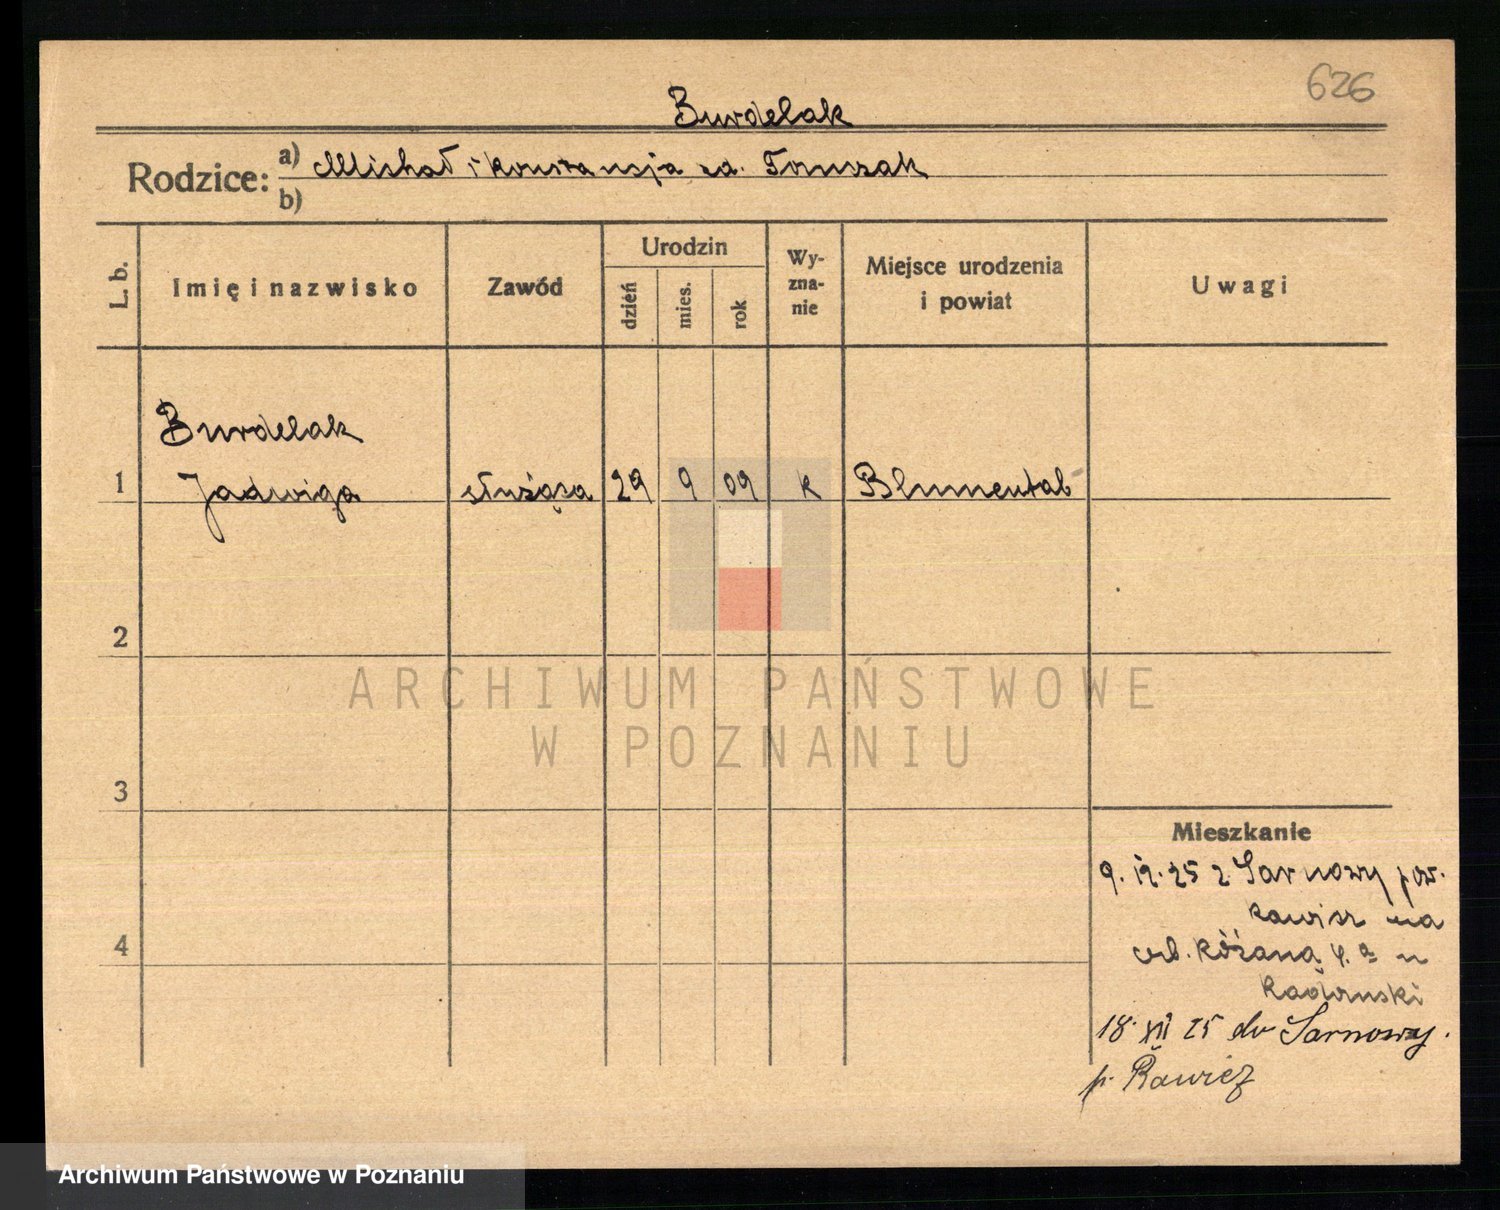 626
Burdelak
Rodzice: a) Michał i Konstancja za. Tomczak
b)
L. b.
Imię i nazwisko
Zawód
Urodzin
dzień
mies.
rok
Wy-
zna-
nie
Miejsce urodzenia
i powiat
Uwagi
Burdelak
1 Jadwiga służąca 29 9 09 k Blumental
2
3
4
Mieszkanie
9. 12. 25 z Sarnowy pow.
Rawicz na
ul. Różaną 4. a u
18. XII 25 do Sarnowy.
p. Rawicz
ARCHIWUM PAŃSTWOWE
W POZNANIU
Archiwum Państwowe w Poznaniu